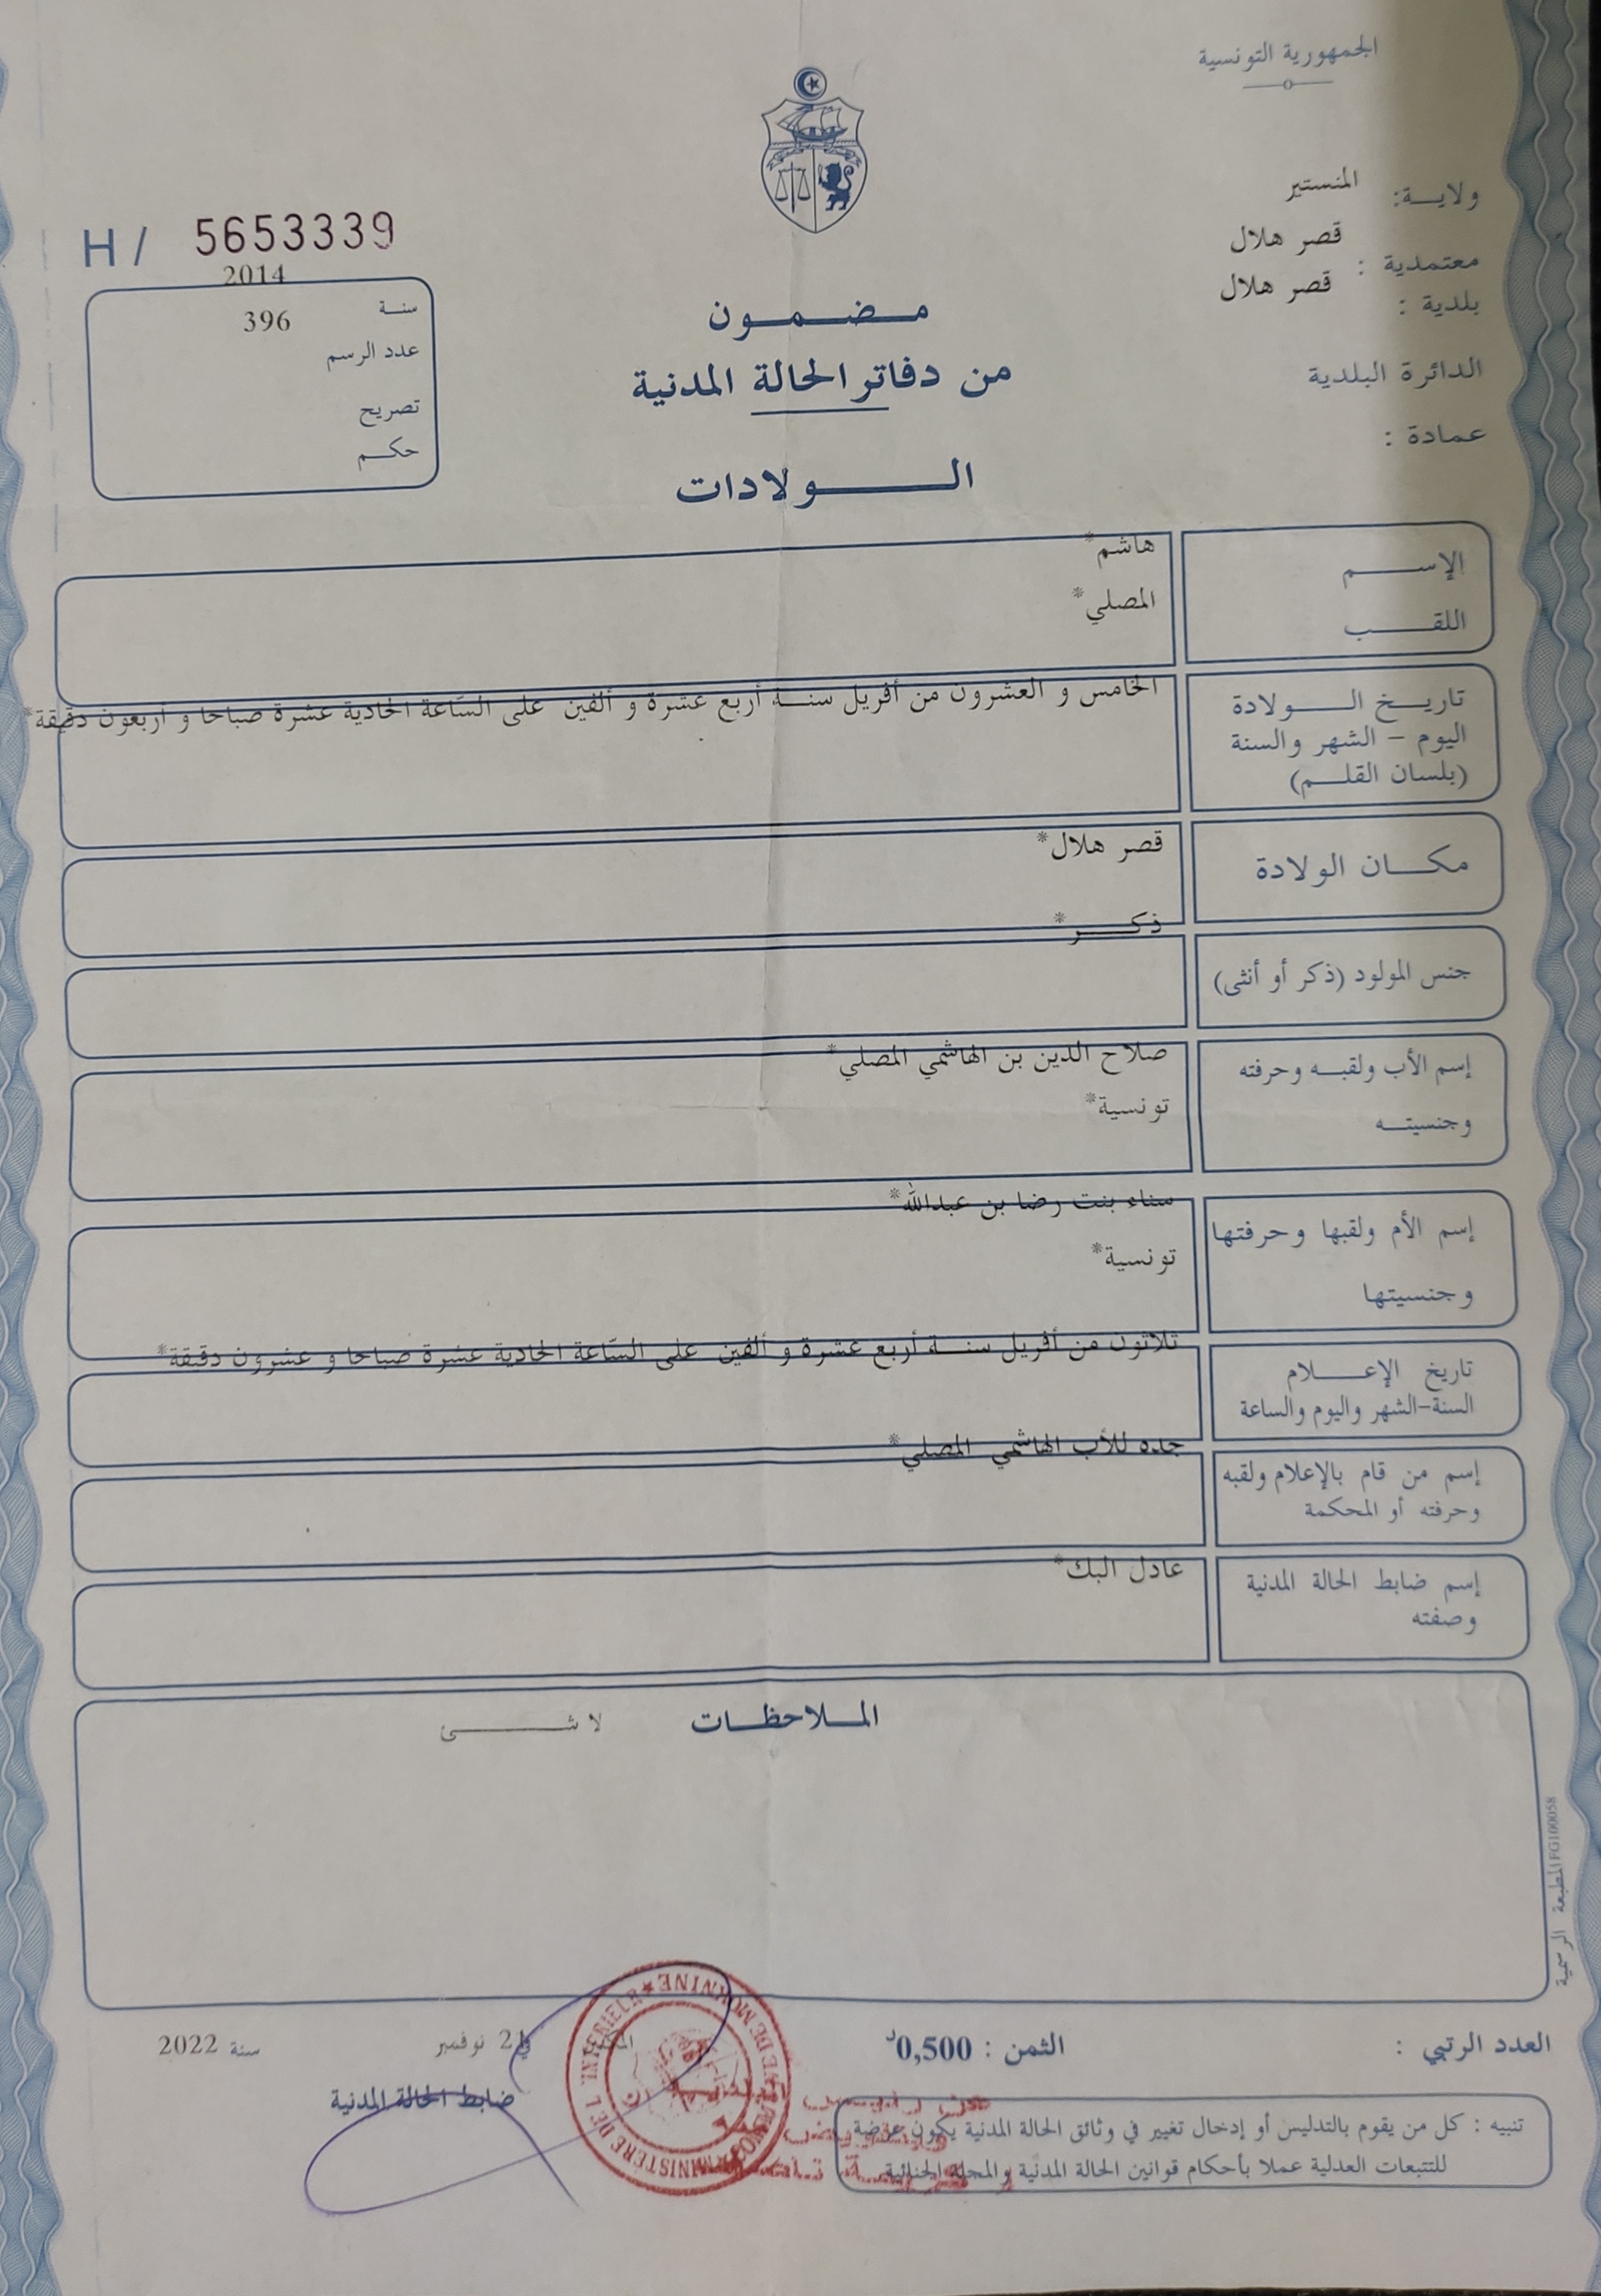 الجمهورية التونسية
ولايـــة: المنستير
معتمدية : قصر هلال
بلدية : قصر هلال
الدائرة البلدية
عمادة :
H / 5653339
2014
سنة
396
عدد الرسم
تصريح
حكم
مضمون
من دفاتر الحالة المدنية
الولادات
الإسم هاشم*
اللقب المصلي*
تاريخ الولادة
اليوم - الشهر والسنة
(بلسان القلم)
الخامس و العشرون من أفريل سنة أربع عشرة و ألفين على السّاعة الحادية عشرة صباحا و أربعون دقيقة*
مكان الولادة قصر هلال*
جنس المولود (ذكر أو أنثى) ذكر*
إسم الأب ولقبه وحرفته صلاح الدين بن الهاشمي المصلي*
وجنسيته تونسية*
إسم الأم ولقبها وحرفتها سناء بنت رضا بن عبدالله*
وجنسيتها تونسية*
تاريخ الإعلام
السنة-الشهر واليوم والساعة
ثلاثون من أفريل سنة أربع عشرة و ألفين على السّاعة الحادية عشرة صباحا و عشرون دقيقة*
إسم من قام بالإعلام ولقبه
وحرفته أو المحكمة
جده للأب الهاشمي المصلي*
إسم ضابط الحالة المدنية
وصفته
عادل البك*
الملاحظات لا شئ
المطبعة الرسمية FG100058
العدد الرتبي :
الثمن : 0,500د
21 نوفمبر سنة 2022
ضابط الحالة المدنية
تنبيه : كل من يقوم بالتدليس أو إدخال تغيير في وثائق الحالة المدنية يكون عرضة
للتتبعات العدلية عملا بأحكام قوانين الحالة المدنية والمجلة الجنائية
MINISTERE DE L'INTERIEUR